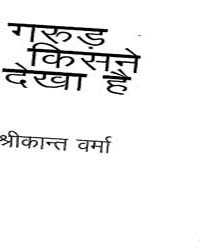 गरुड़
किसने
देखा है
श्रीकान्त वर्मा